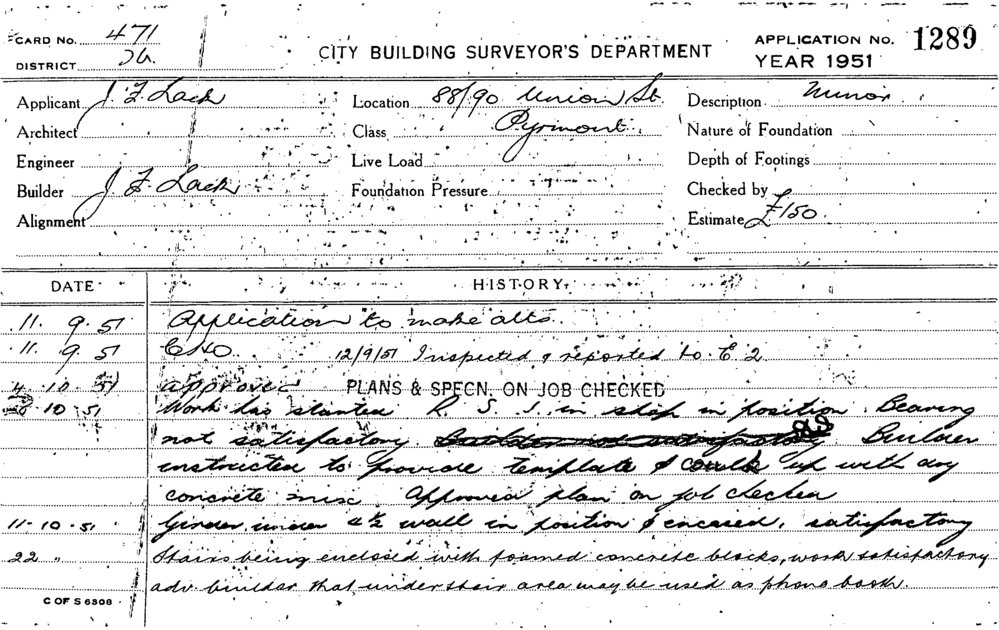 CARD No. 471
DISTRICT
CITY BUILDING SURVEYOR'S DEPARTMENT
APPLICATION No. 1289
YEAR 1951
Applicant J. F. Lack
Architect
Engineer
Builder J. F. Lack
Alignment
Location 88/90 Union St
Class Pyrmont
Live Load
Foundation Pressure
Description Minor
Nature of Foundation
Depth of Footings
Checked by
Estimate £150
DATE HISTORY
11. 9. 51 Application to make alts
11. 9. 51 12/9/51 Inspected & reported to E 2
4 10 51 approved PLANS & SPECN. ON JOB CHECKED
10 51 Work has started R. S. J. in shop in position. Bearing
not satisfactory Builder
instructed to provide template & caulk up with dry
concrete mix Approved plan on job checked
11-10-51 Girder under 4½ wall in position & encased, satisfactory
22 " Stairs being enclosed with foamed concrete blocks, work satisfactory
adv. builder that under stair area may be used as phone booth.
C OF S 6306